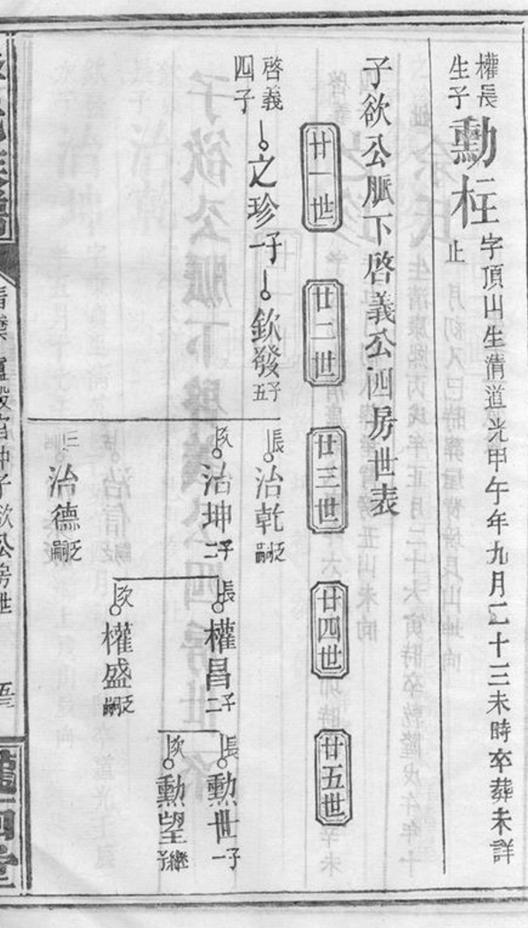 權長
生子
勳枉
字頂山生清道光甲午年九月二十三未時卒葬未詳
止
子欲公脈下啓義公四房世表
廿一世
廿二世
廿三世
廿四世
廿五世
啓義
四子
之珍一子
欽發五子
長
治乾乏嗣
次
治坤二子
三
治德乏嗣
長
權昌二子
次
權盛乏嗣
長
勳世一子
次
勳望繼子
子欲公房世